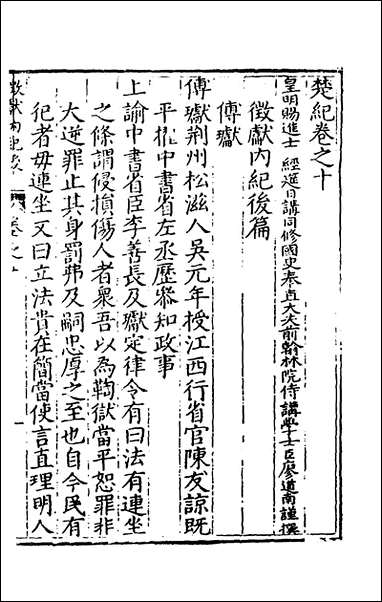 楚紀卷之十
皇明賜進士 經筵日講同修國史奉直大夫前翰林院侍講學士臣廖道南謹撰
徵獻內紀後篇
傅瓛
傅瓛荆州松滋人吳元年授江西行省官陳友諒既
平擢中書省左丞歷叅知政事
上諭中書省臣李善長及瓛定律令有曰法有連坐
之條謂侵損傷人者衆吾以為鞫獄當平恕罪非
大逆罪止其身罰弗及嗣忠厚之至也自今民有
犯者毋連坐又曰立法貴在簡當使言直理明人
徵獻內紀後
卷之十
一